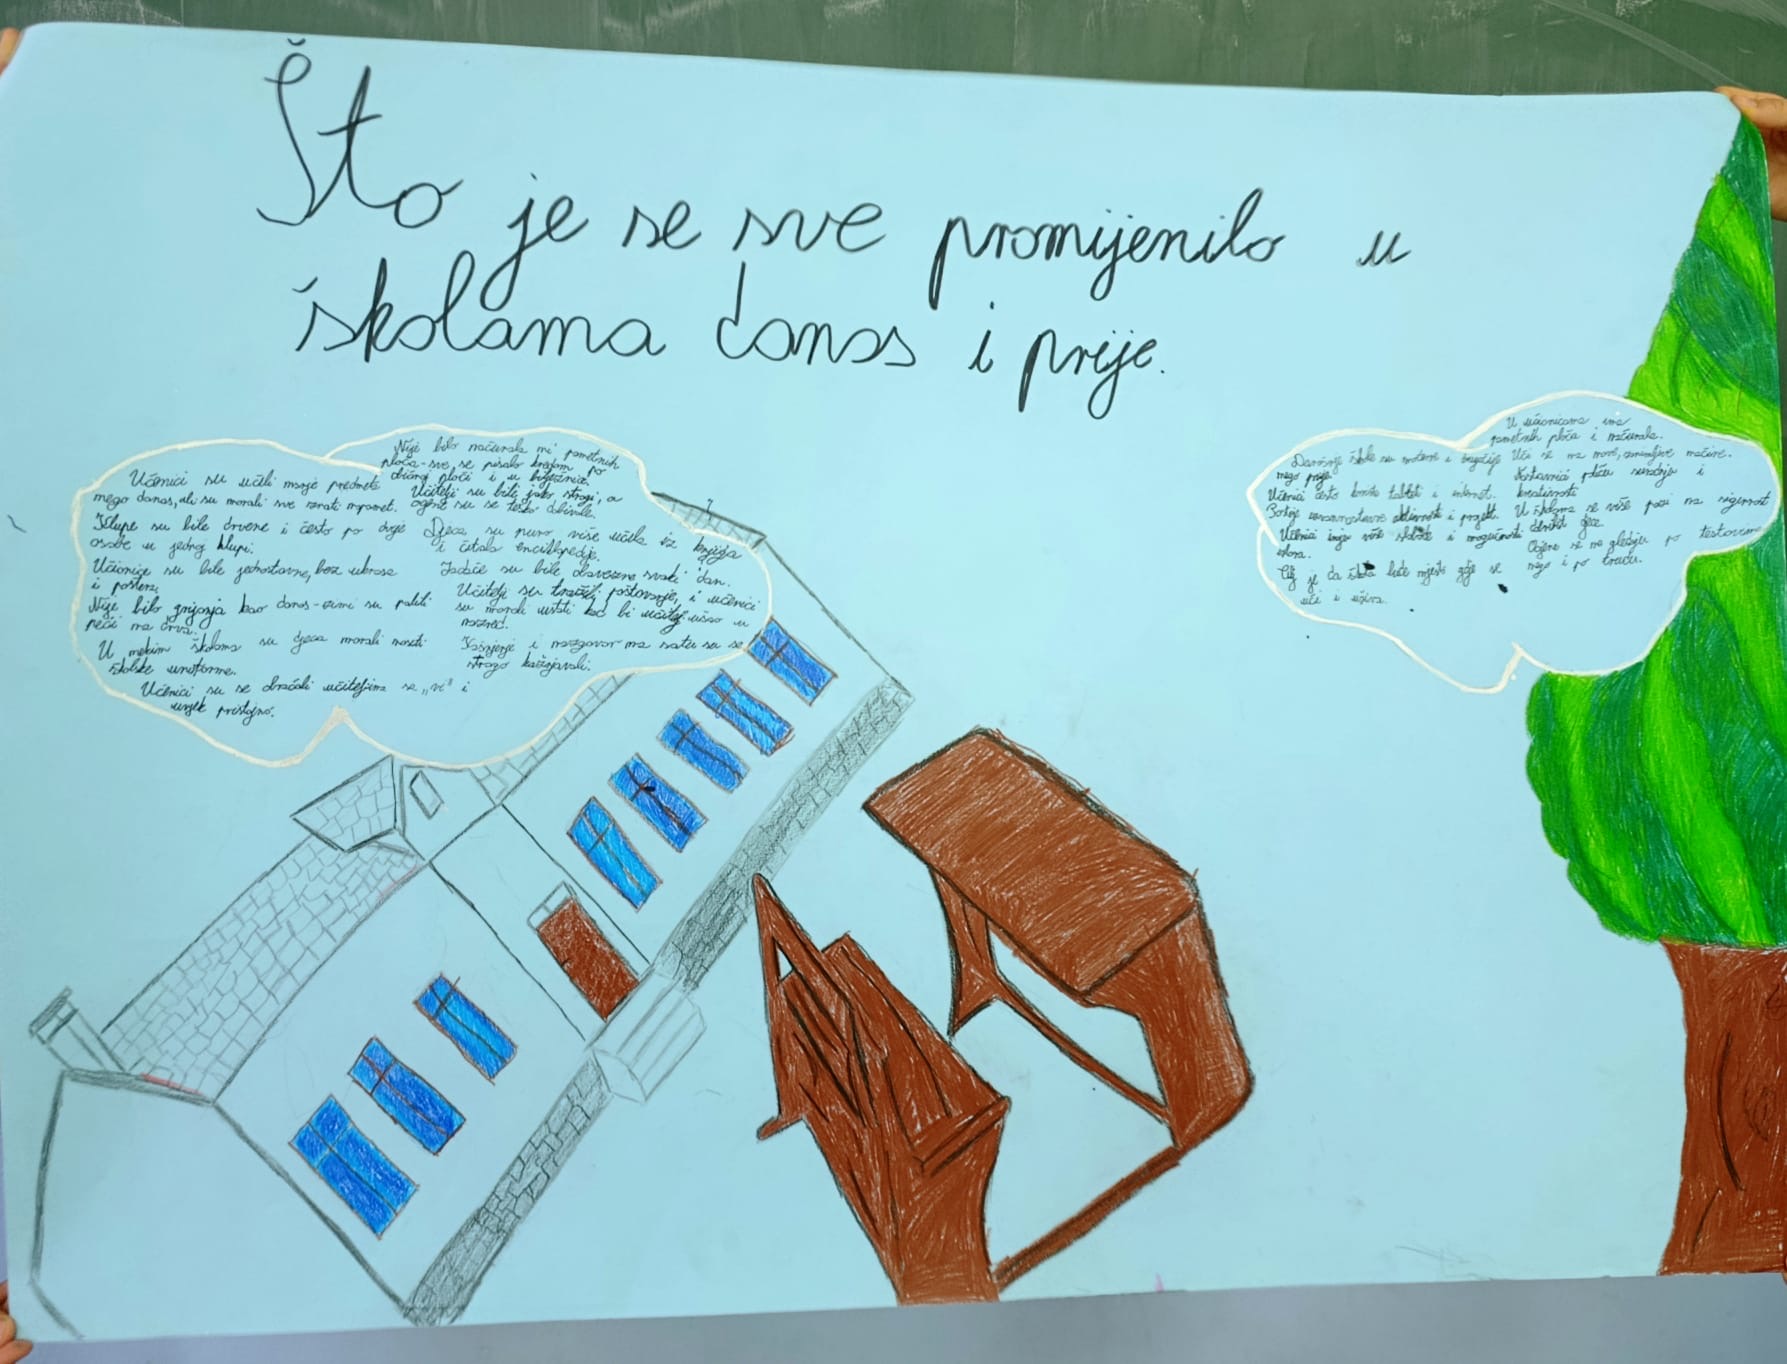 Što je se sve promijenilo u
školama danas i prije.
Učenici su učili manje predmeta
nego danas, ali su morali sve znati napamet.
Klupe su bile drvene i često po dvije
osobe u jednoj klupi.
Učionice su bile jednostavne, bez ukrasa
i postera.
Nije bilo grijanja kao danas-zimi su palili
peći na drva.
U nekim školama su djeca morali nositi
školske uniforme.
Učenici su se obraćali učiteljima sa „vi" i
uvijek pristojno.
Nije bilo računala ni pametnih
ploča-sve se pisalo kredom po
običnoj ploči i u bilježnice.
Učitelji su bili jako strogi, a
ocjene su se teško dobivale.
Djeca su puno više učila iz knjiga
i čitala enciklopedije.
Zadaće su bile obavezne svaki dan.
Učitelji su tražili poštovanje, i učenici
su morali ustati kad bi učitelj ušao u
razred.
Kašnjenje i razgovor na satu su se
strogo kažnjavali.
Današnje škole su moderne i
nego prije.
Učenici često koriste tablete i internet.
Postoje izvannastavne aktivnosti i projekti.
Učenici imaju više slobode i mogućnosti
izbora.
Cilj je da škola bude mjesto gdje se
uči i uživa.
U učionicama ima
pametnih ploča i računala.
Uči se na nove, zanimljive načine.
Nastavnici potiču suradnju i
kreativnost
U školama se više pazi na sigurnost
djece.
Ocjene se ne gledaju po testovima
nego i po trudu.